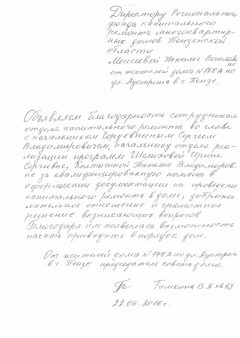 Директору Регионального
фонда капитального
ремонта многоквартир-
ных домов Пензенской
области
Моисеевой Наталье
от жителей дома №148А по
ул. в г. Пензе.
Объявляем благодарность сотрудникам
отдела капитального ремонта во главе
с начальником Сергеем
Владимировичем, начальнику отдела реа-
лизации программ Ирине
Сергеевне, Татьяне Владимиров-
не за квалифицированную помощь в
оформлении документации на проведение
капитального ремонта в доме, доброже-
лательное отношение и грамотное
решение возникающих вопросов.
Благодаря им появилась возможность
начать приводить в порядок дом.
От жителей дома по ул.
в г. Пензе председатель совета дома
Тимкина В.Я
22.06.2016г.